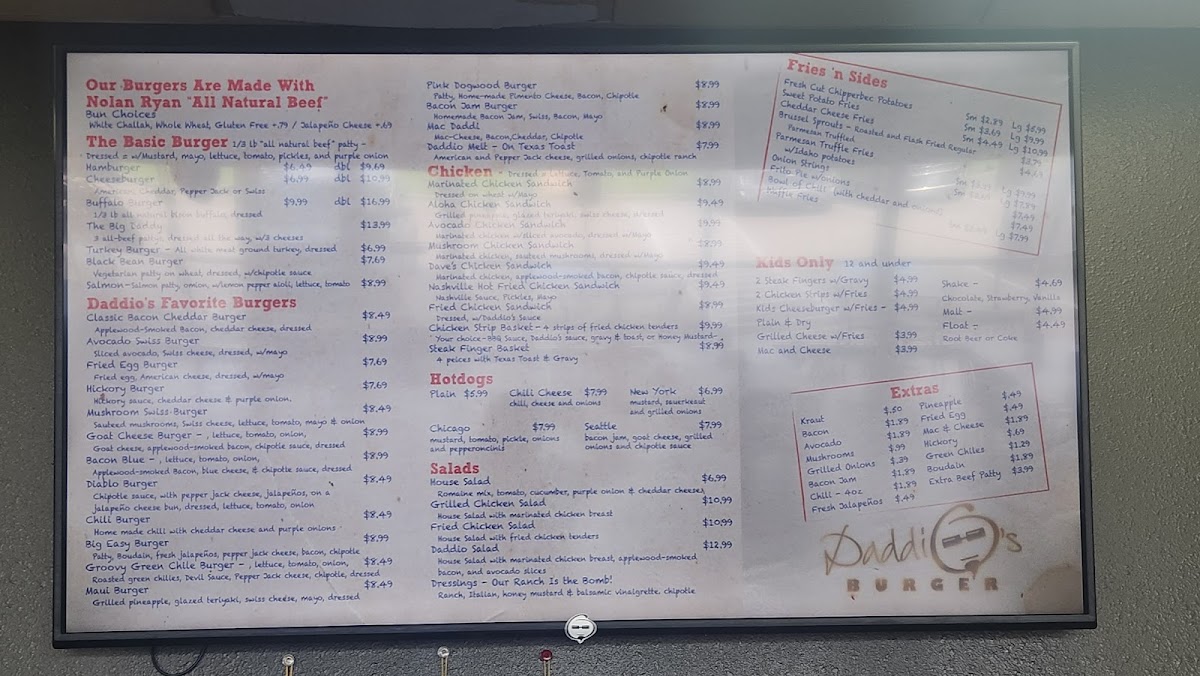 Our Burgers Are Made With
Nolan Ryan "All Natural Beef"
Bun Choices
White Challah, Whole Wheat, Gluten Free +.79 / Jalapeño Cheese +.69
The Basic Burger 1/3 lb "all natural beef" patty -
Dressed = w/Mustard, mayo, lettuce, tomato, pickles, and purple onion
Hamburger $6.49 dbl $9.69
Cheeseburger $6.99 dbl $10.99
American, Cheddar, Pepper Jack or Swiss
Buffalo Burger $9.99 dbl $16.99
1/3 lb all natural bison buffalo, dressed
The Big Daddy $13.99
3 all-beef pattys, dressed all the way, w/3 cheeses
Turkey Burger - All white meat ground turkey, dressed $6.99
Black Bean Burger $7.69
Vegetarian patty on wheat, dressed, w/chipotle sauce
Salmon-Salmon patty, onion, w/lemon pepper aioli, lettuce, tomato $8.99
Daddio's Favorite Burgers
Classic Bacon Cheddar Burger $8.49
Applewood-Smoked Bacon, cheddar cheese, dressed
Avocado Swiss Burger $8.99
Sliced avocado, Swiss cheese, dressed, w/mayo
Fried Egg Burger $7.69
Fried egg, American cheese, dressed, w/mayo
Hickory Burger $7.69
Hickory sauce, cheddar cheese & purple onion.
Mushroom Swiss Burger $8.49
Sauteed mushrooms, Swiss cheese, lettuce, tomato, mayo & onion
Goat Cheese Burger - , lettuce, tomato, onion, $8.99
Goat cheese, applewood-smoked bacon, chipotle sauce, dressed
Bacon Blue - , lettuce, tomato, onion, $8.99
Applewood-smoked Bacon, blue cheese, & chipotle sauce, dressed
Diablo Burger $8.49
Chipotle sauce, with pepper jack cheese, jalapeños, on a
jalapeño cheese bun, dressed, lettuce, tomato, onion
Chili Burger $8.49
Home made chili with cheddar cheese and purple onions
Big Easy Burger $8.99
Patty, Boudain, fresh jalapeños, pepper jack cheese, bacon, chipotle
Groovy Green Chile Burger - , lettuce, tomato, onion, $8.49
Roasted green chilies, Devil Sauce, Pepper Jack cheese, chipotle, dressed
Maui Burger $8.49
Grilled pineapple, glazed teriyaki, swiss cheese, mayo, dressed
Pink Dogwood Burger $8.99
Patty, Home-made Pimento Cheese, Bacon, Chipotle
Bacon Jam Burger $8.99
Homemade Bacon Jam, Swiss, Bacon, Mayo
Mac Daddi $8.99
Mac-Cheese, Bacon, Cheddar, Chipotle
Daddio Melt - On Texas Toast $7.99
American and Pepper Jack cheese, grilled onions, chipotle ranch
Chicken - Dressed = Lettuce, Tomato, and Purple Onion
Marinated Chicken Sandwich $8.99
Dressed on wheat w/Mayo
Aloha Chicken Sandwich $9.49
Grilled pineapple, glazed teriyaki, swiss cheese, dressed
Avocado Chicken Sandwich $9.99
Marinated chicken w/sliced avocado, dressed, w/Mayo
Mushroom Chicken Sandwich $8.99
Marinated chicken, sauteed mushrooms, dressed w/Mayo
Dave's Chicken Sandwich $9.49
Marinated chicken, applewood-smoked bacon, chipotle sauce, dressed
Nashville Hot Fried Chicken Sandwich $9.49
Nashville Sauce, Pickles, Mayo
Fried Chicken Sandwich $8.99
Dressed, w/Daddio's Sauce
Chicken Strip Basket - 4 strips of fried chicken tenders $9.99
Your choice-BBQ Sauce, Daddio's sauce, gravy & toast, or Honey Mustard-
Steak Finger Basket $8.99
4 peices with Texas Toast & Gravy
Hotdogs
Plain $5.99 Chili Cheese $7.99 New York $6.99
chili, cheese and onions mustard, sauerkeaut
and grilled onions
Chicago $7.99 Seattle $7.99
mustard, tomato, pickle, onions bacon jam, goat cheese, grilled
and pepperoncinis onions and chipotle sauce
Salads
House Salad $6.99
Romaine mix, tomato, cucumber, purple onion & cheddar cheese
Grilled Chicken Salad $10.99
House Salad with marinated chicken breast
Fried Chicken Salad $10.99
House Salad with fried chicken tenders
Daddio Salad $12.99
House Salad with marinated chicken breast, applewood-smoked
bacon, and avocado slices
Dressings - Our Ranch Is the Bomb!
Ranch, Italian, honey mustard & balsamic vinaigrette. chipotle
Fries 'n Sides
Fresh Cut Chipperbec Potatoes Sm $2.89 Lg $6.99
Sweet Potato Fries Sm $3.69 Lg $9.99
Cheddar Cheese Fries Sm $4.49 Lg $10.99
Brussel Sprouts - Roasted and Flash Fried Regular
Parmesan Truffled $4.69
Parmesan Truffle Fries Lg $9.99
w/Idaho potatoes
Onion Strings Lg $7.89
Frito Pie w/onions $7.49
Bowl of Chili (with cheddar and onions) $7.49
Puffin Fries Lg $7.99
Kids Only 12 and under
2 Steak Fingers w/Gravy $4.99
2 Chicken Strips w/Fries $4.99
Kids Cheeseburger w/Fries - $4.99
Plain & Dry
Grilled Cheese w/Fries $3.99
Mac and Cheese $3.99
Shake - $4.69
Chocolate, Strawberry, Vanilla
Malt - $4.99
Float - $4.49
Root Beer or Coke
Extras
Kraut $.50
Bacon $1.89
Avocado $1.89
Mushrooms $.99
Grilled Onions $.39
Bacon Jam $1.89
Chili - 4oz $1.89
Fresh Jalapeños $.49
Pineapple $.49
Fried Egg $.49
Mac & Cheese $1.89
Hickory $.69
Green Chiles $1.29
Boudain $1.89
Extra Beef Patty $3.99
Daddio's
BURGER